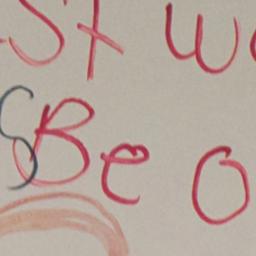 st w
Be o